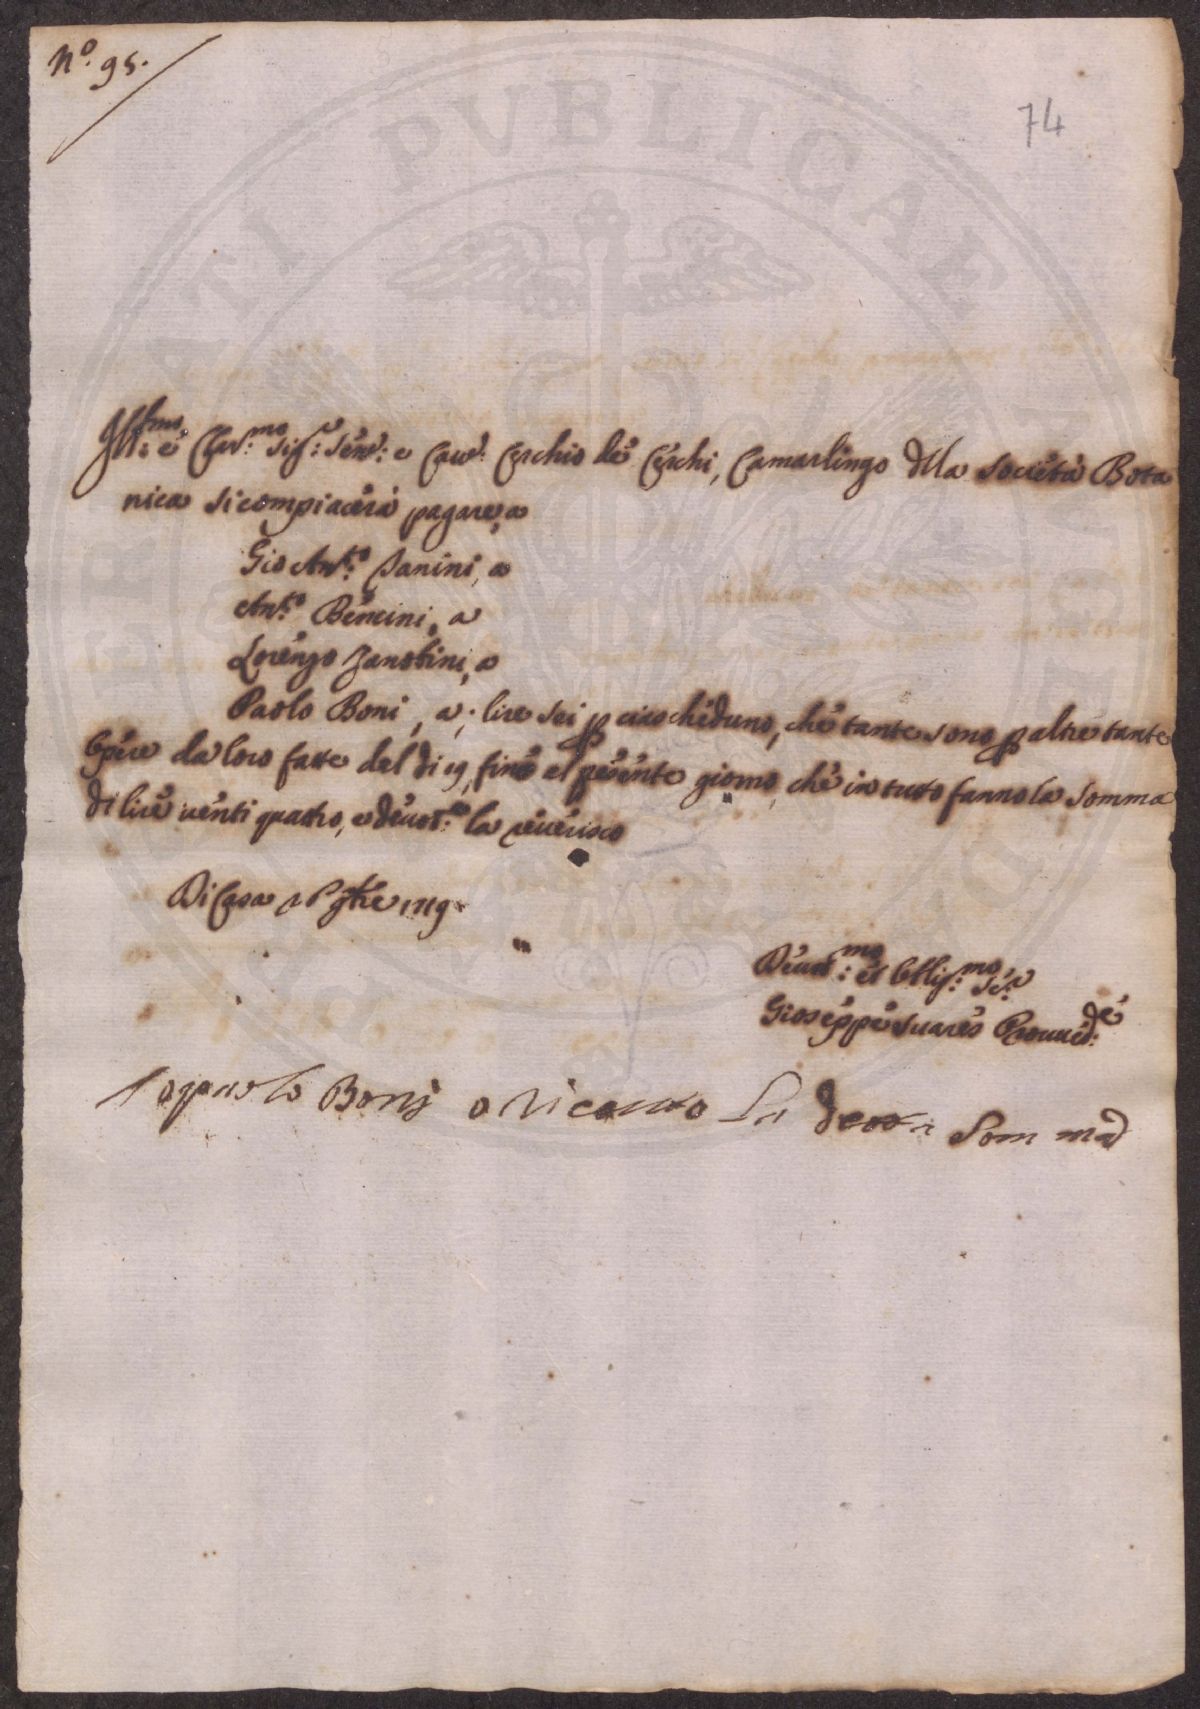 N.º 95.
74
Ill:mo e Clar:mo Sig:r Sen:r e Cav:r Cerchio de Cerchi, Camarlingo della Società Bota
nica si compiacerà pagare, a
Gio Ant:o Panini, a
Ant:o Bencini, a
Lorenzo Zanobini, a
Paolo Boni, a; lire sei p ciascheduno, che tante sono p altre tante
Opere da loro fatte del dì 19, fino al presente giorno, che in tutto fanno la Somma
di lire venti quattro, e devot:te la riverisco
Di Casa 7bre 1719
Devot:mo et Obblig:mo Se:re
Giuseppe Suares Provved:re
Io pavolo Boni o riceuto La detta Somma
PUBLICAE